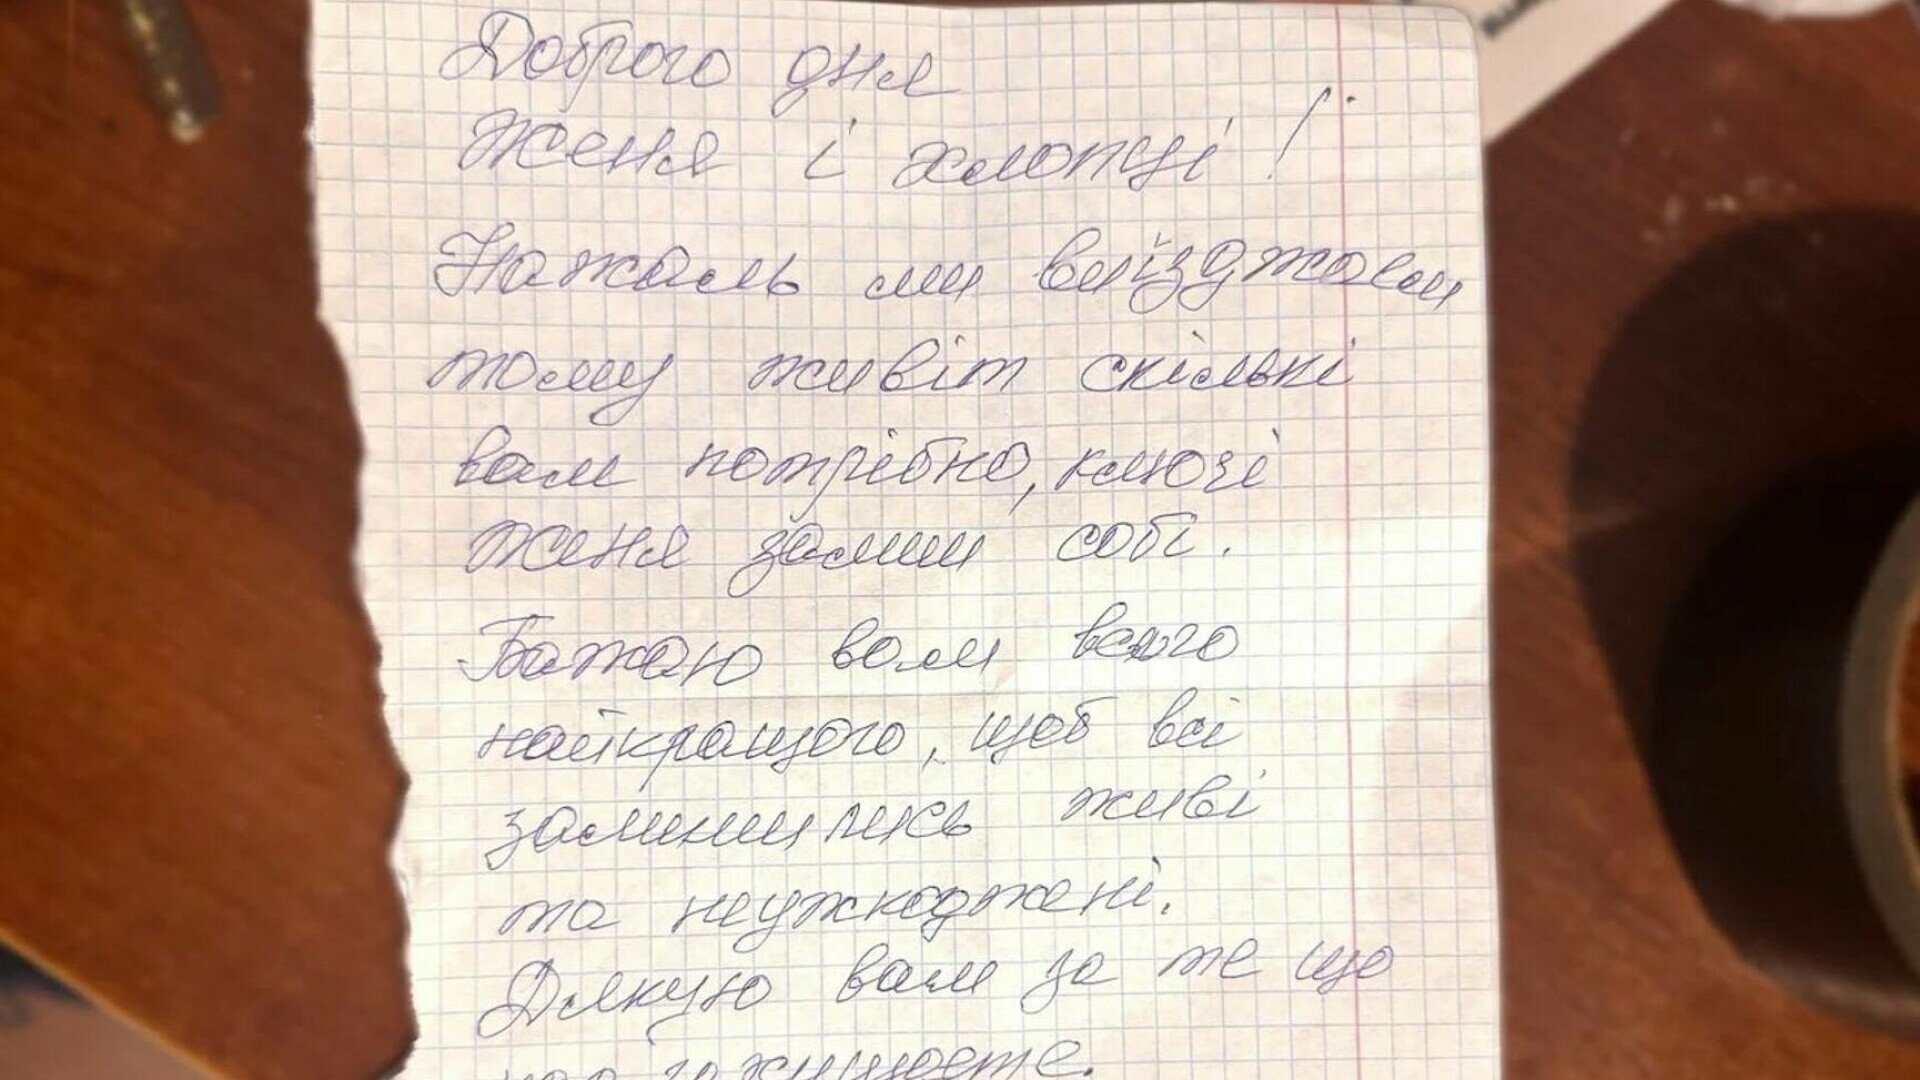 Доброго дня
Женя і хлопці!
Нажаль ми виїзджаєм
тому живіт скількі
вам потрібно, ключі
женя залиш собі.
Бажаю вам всього
найкращого, щоб всі
залишились живі
та неужкоджені.
Дякую вам за те що
нас захищаєте.